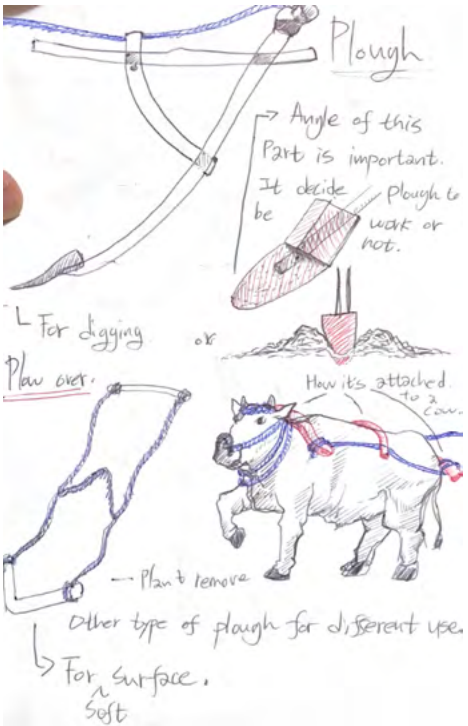 Plough
Angle of this
Part is important.
It decide
be
plough to
work or
not.
For digging.
or
Plow over.
How it's attached
to a
cow.
Plant remove
Other type of plough for different use.
For surface.
soft